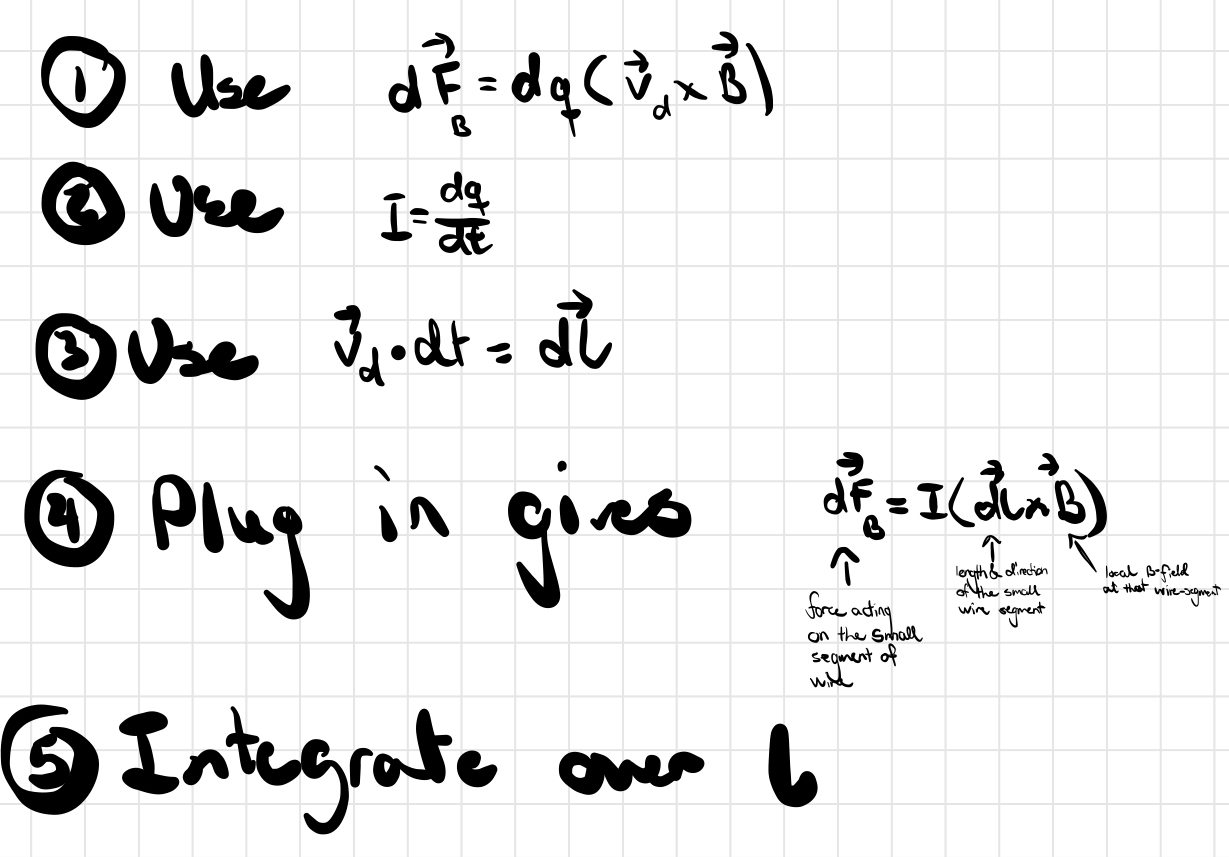 ① Use dF⃗_B = dq(v⃗_d × B⃗)
② Use I = dq/dt
③ Use v⃗_d · dt = dl⃗
④ Plug in gives dF⃗_B = I(dl⃗ × B⃗)
force acting
on the small
segment of
wire
length & direction
of the small
wire segment
local B-field
at that wire-segment
⑤ Integrate over l